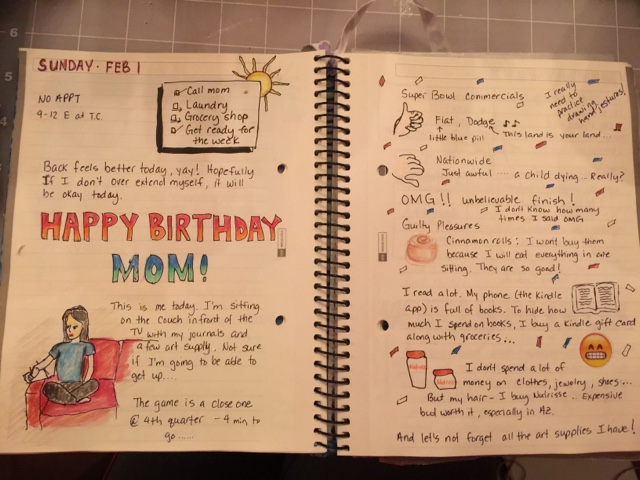 SUNDAY · FEB 1
NO APPT
9-12 E at T.C.
Call mom
Laundry
Grocery shop
Get ready for
the week
Back feels better today, yay! Hopefully
If I don't over extend myself, it will
be okay today.
HAPPY BIRTHDAY
MOM!
This is me today. I'm sitting
on the couch in front of the
TV with my journals and
a few art supply. Not sure
if I'm going to be able to
get up....
The game is a close one
@ 4th quarter - 4 min to
go ......
Super Bowl Commercials
I really
need to
practice
drawing
hand gestures!
Fiat, Dodge ♫ ♪
little blue pill
This land is your land...
Nationwide
Just awful .... a child dying... Really?
OMG!! unbelievable finish!
I don't know how many
times I said OMG
Guilty Pleasures
Cinnamon rolls: I won't buy them
because I will eat everything in one
sitting. They are so good!
I read a lot. My phone (the Kindle
app) is full of books. To hide how
much I spend on books, I buy a Kindle gift card
along with groceries...
I don't spend a lot of
money on clothes, jewelry, shoes...
But my hair - I buy Nutrisse .. Expensive
but worth it, especially in AZ.
And let's not forget all the art supplies I have!